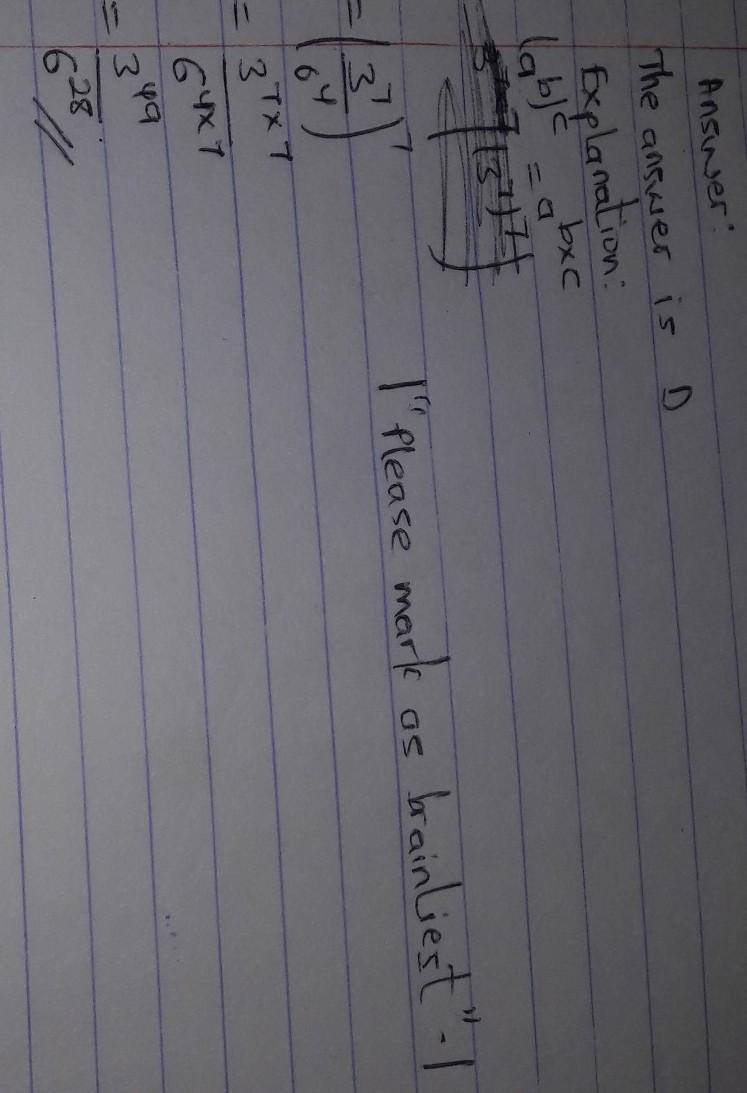 Answer:
The answer is D
Explanation:
(ab)c = a bxc
= (3^7/6^4)^7
= 3^7x7
6^4x7
= 3^49
6^28 //
|"Please mark as brainliest"-|